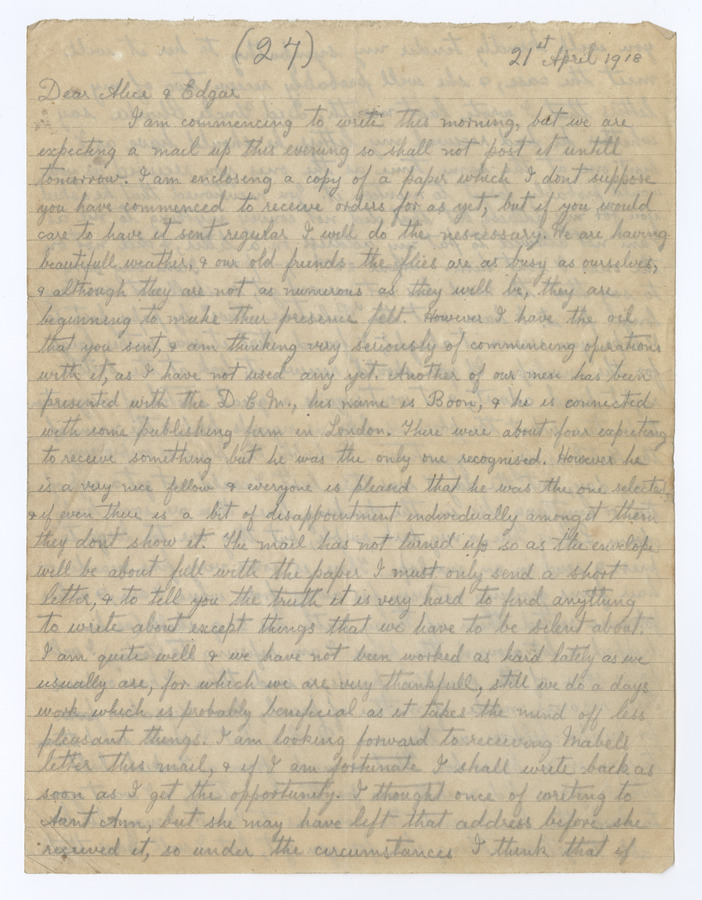 (27)
21st April 1918
Dear Alice & Edgar
I am commencing to write this morning, but we are
expecting a mail up this evening so shall not post it untill
tomorrow. I am enclosing a copy of a paper which I dont suppose
you have commenced to receive orders for as yet, but if you would
care to have it sent regular I will do the nescessary. We are having
beautifull weather, & our old friends the flies are as busy as ourselves,
& although they are not as numerous as they will be, they are
beginning to make their presence felt. However I have the oil
that you sent, & am thinking very seriously of commencing operations
with it, as I have not used any yet. Another of our men has been
presented with the D C M., his name is Boon, & he is connected
with some publishing firm in London. There were about four expecting
to receive something but he was the only one recognised. However he
is a very nice fellow & everyone is pleased that he was the one selected,
& if even there is a bit of disappointment individually amongst them
they dont show it. The mail has not turned up so as the envelope
will be about full with the paper I must only send a short
letter, & to tell you the truth it is very hard to find anything
to write about except things that we have to be silent about.
I am quite well & we have not been worked as hard lately as we
usually are, for which we are very thankfull, still we do a days
work which is probably beneficial as it takes the mind off less
pleasant things. I am looking forward to receiving Mabels
letter this mail, & if I am fortunate I shall write back as
soon as I get the opportunity. I thought once of writing to
Aunt Ann, but she may have left that address before she
received it, so under the circumstances I think that if